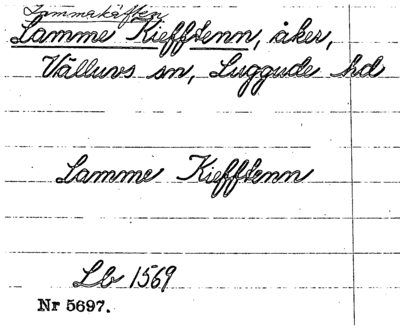 Lammakäften
Lamme Kiefftenn, åker,
Välluvs sn, Luggude hd
Lamme Kiefftenn
Lb 1569
Nr 5697.